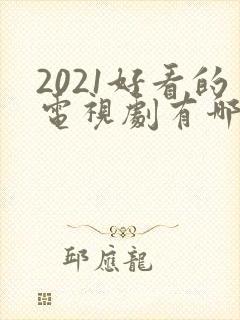 2021好看的
電視劇有哪
邱應龍